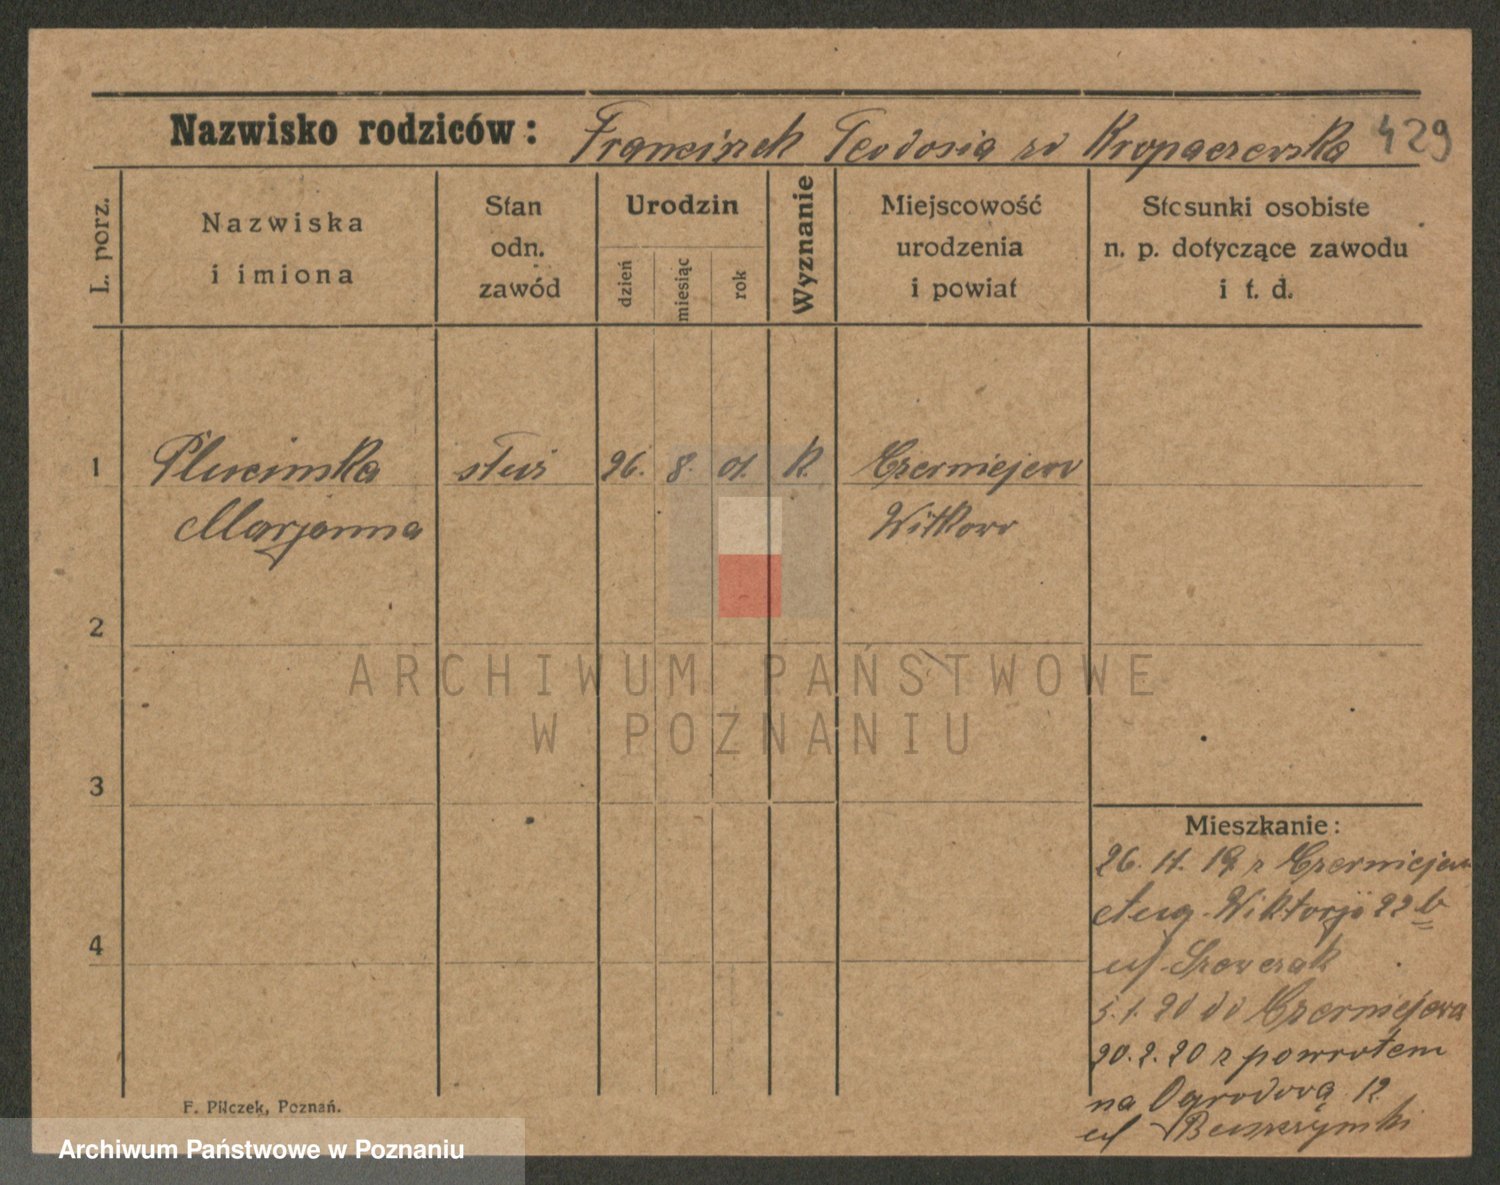 Nazwisko rodziców: Franciszek Teodosia zd Kropaczewska 429
L. porz.
Nazwiska
i imiona
Stan
odn.
zawód
Urodzin
dzień
miesiąc
rok
Wyznanie
Miejscowość
urodzenia
i powiat
Stosunki osobiste
n. p. dotyczące zawodu
i t. d.
1 Plucimska służ 26. 8. 01. K. Czerniejewo
Marjanna Witkowo
2
ARCHIWUM PAŃSTWOWE
W POZNANIU
3
Mieszkanie:
26. 11. 19 z Czerniejewa
Aug. Wiktorji 22 b
u/ Szewczak
4
5. 1. 20 do Czerniejewa
20. 2. 20 z powrotem
na Ogrodową 12
u/
F. Pilczek, Poznań.
Archiwum Państwowe w Poznaniu